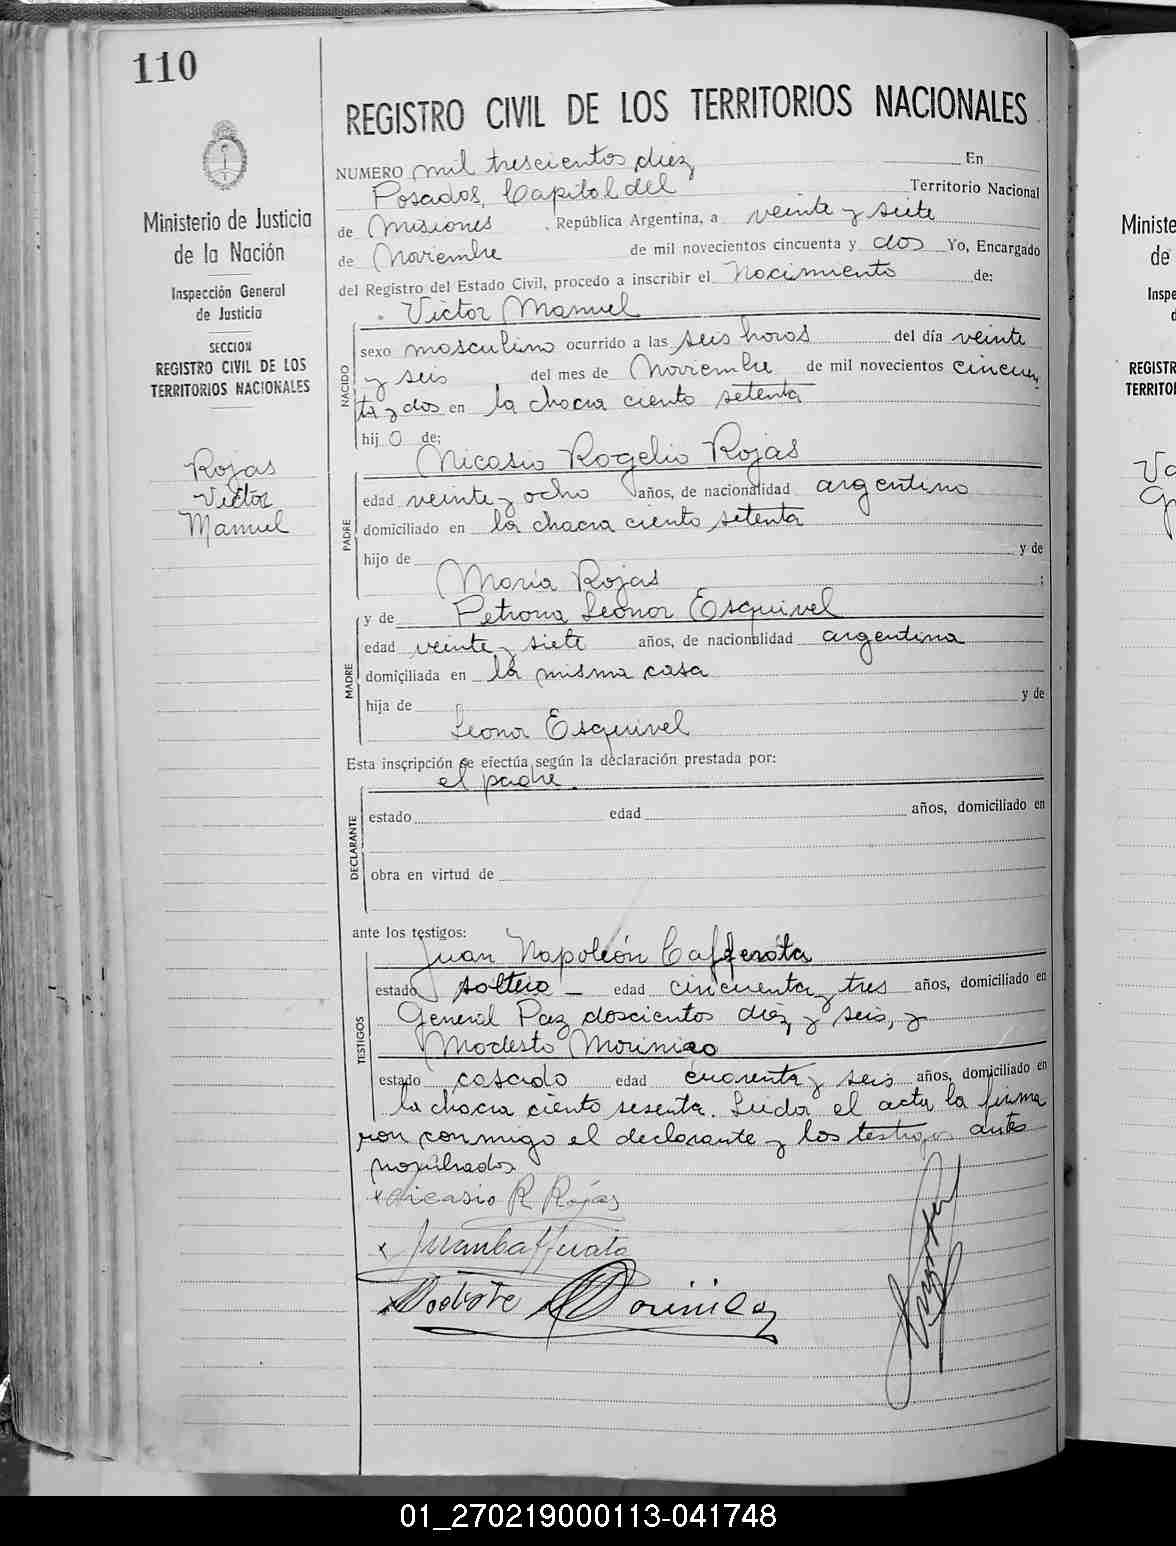 110
REGISTRO CIVIL DE LOS TERRITORIOS NACIONALES
Ministerio de Justicia
de la Nación
Inspección General
de Justicia
SECCION
REGISTRO CIVIL DE LOS
TERRITORIOS NACIONALES
Rojas
Victor
Manuel
NUMERO mil trescientos diez En
Posadas, Capital del Territorio Nacional
de Misiones , República Argentina, a veinte y siete
de Noviembre de mil novecientos cincuenta y dos Yo, Encargado
del Registro del Estado Civil, procedo a inscribir el Nacimiento de:
Victor Manuel
NACIDO
sexo masculino ocurrido a las seis horas del día veinte
y seis del mes de Noviembre de mil novecientos cincuen
ta y dos en la chacra ciento setenta
hijo de:
Nicasio Rogelio Rojas
PADRE
edad veinte y ocho años, de nacionalidad argentino
domiciliado en la chacra ciento setenta
hijo de y de
María Rojas ;
y de Petrona Leonor Esquivel
MADRE
edad veinte y siete años, de nacionalidad argentina
domiciliada en la misma casa
hija de y de
Leona Esquivel
Esta inscripción se efectúa según la declaración prestada por:
el padre.
DECLARANTE
estado edad años, domiciliado en
obra en virtud de
ante los testigos:
Juan Napoleón Cafferata
TESTIGOS
estado soltero – edad cincuenta y tres años, domiciliado en
General Paz doscientos diez y seis, y
Modesto
estado casado edad cuarenta y seis años, domiciliado en
la chacra ciento sesenta. Leida el acta la firma
ron conmigo el declarante y los testigos ante
nombrados
x Nicasio R Rojas
x Juan Cafferata
x
Ministerio
de
Inspe
REGISTR
TERRITO
01_270219000113-041748